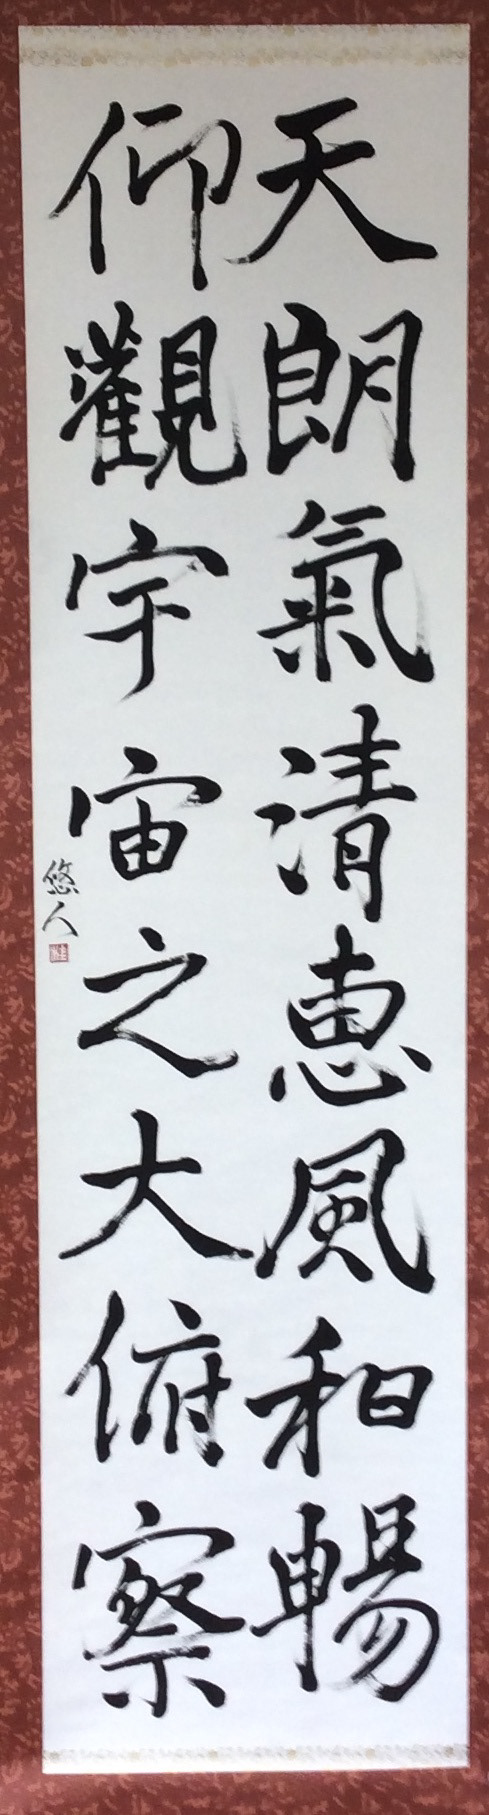 天朗氣清惠風和暢
仰觀宇宙之大俯察
悠人